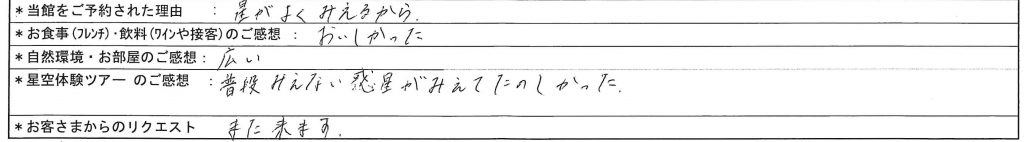 *当館をご予約された理由 : 星がよくみえるから.
*お食事(フレンチ)・飲料(ワインや接客)のご感想 : おいしかった
*自然環境・お部屋のご感想 : 広い
*星空体験ツアー のご感想 : 普段みえない惑星がみえてたのしかった.
*お客さまからのリクエスト また来ます.